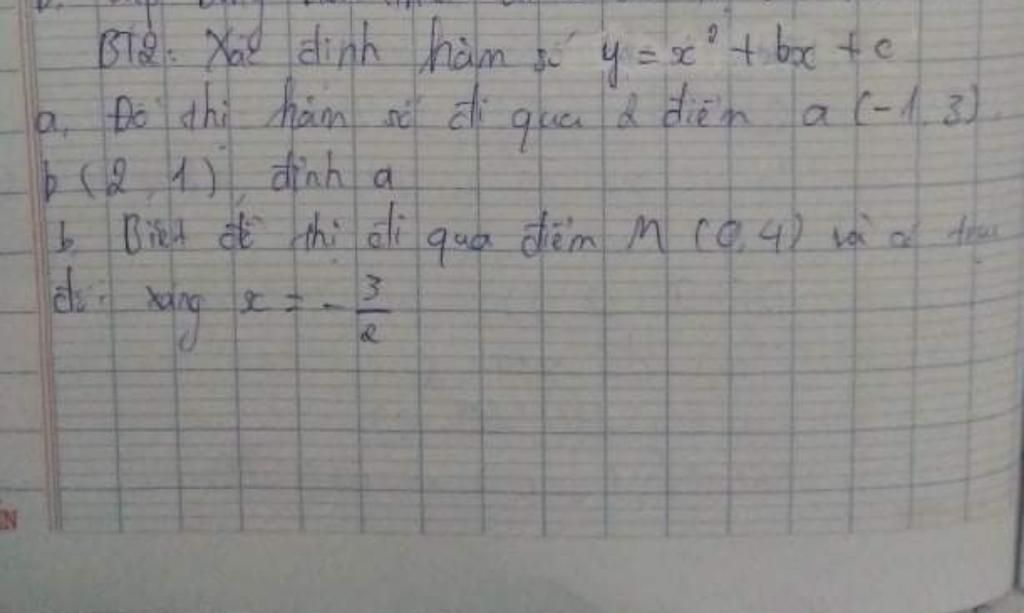 BT2: Xác định hàm số y = x² + bx + c
a, Đồ thị hàm số đi qua 2 điểm a (-1, 3)
b (2, 1), đỉnh a
b, Biết đồ thị đi qua điểm M (0, 4) và có trục
đối xứng x = - 3/2
ÊN